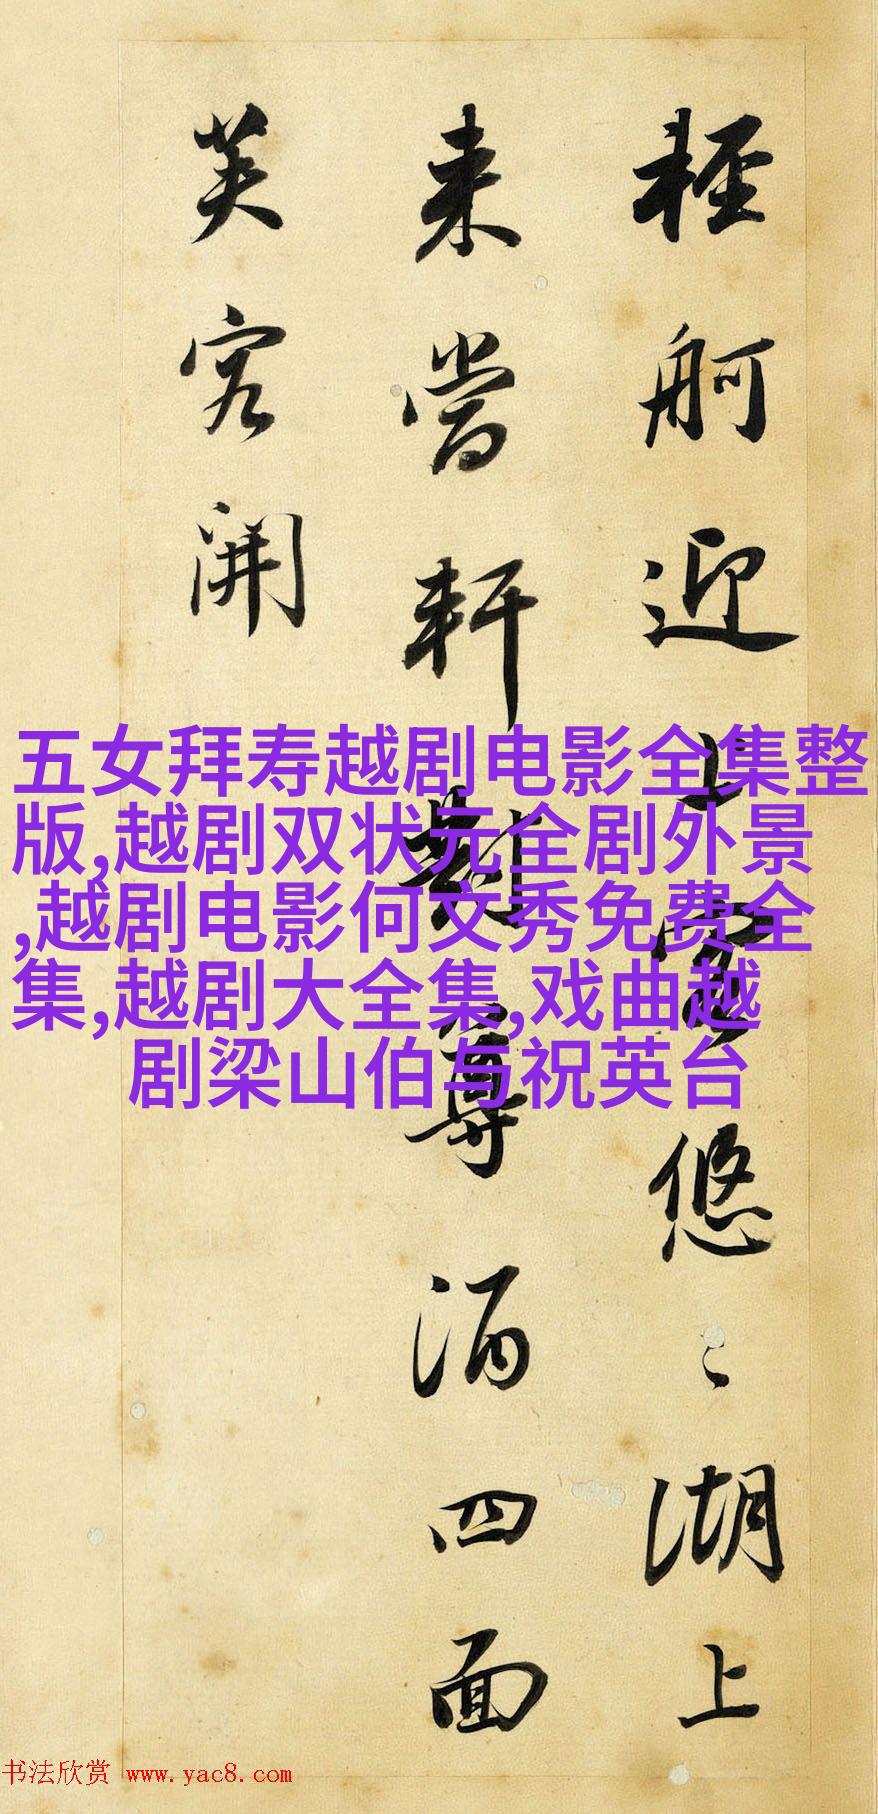 輕舸迎上客悠悠湖上
来當軒對尊酒四面
芙容開
五女拜寿越剧电影全集整
版,越剧双状元全剧外景
,越剧电影何文秀免费全
集,越剧大全集,戏曲越
剧梁山伯与祝英台
书法欣赏 www.yac8.com